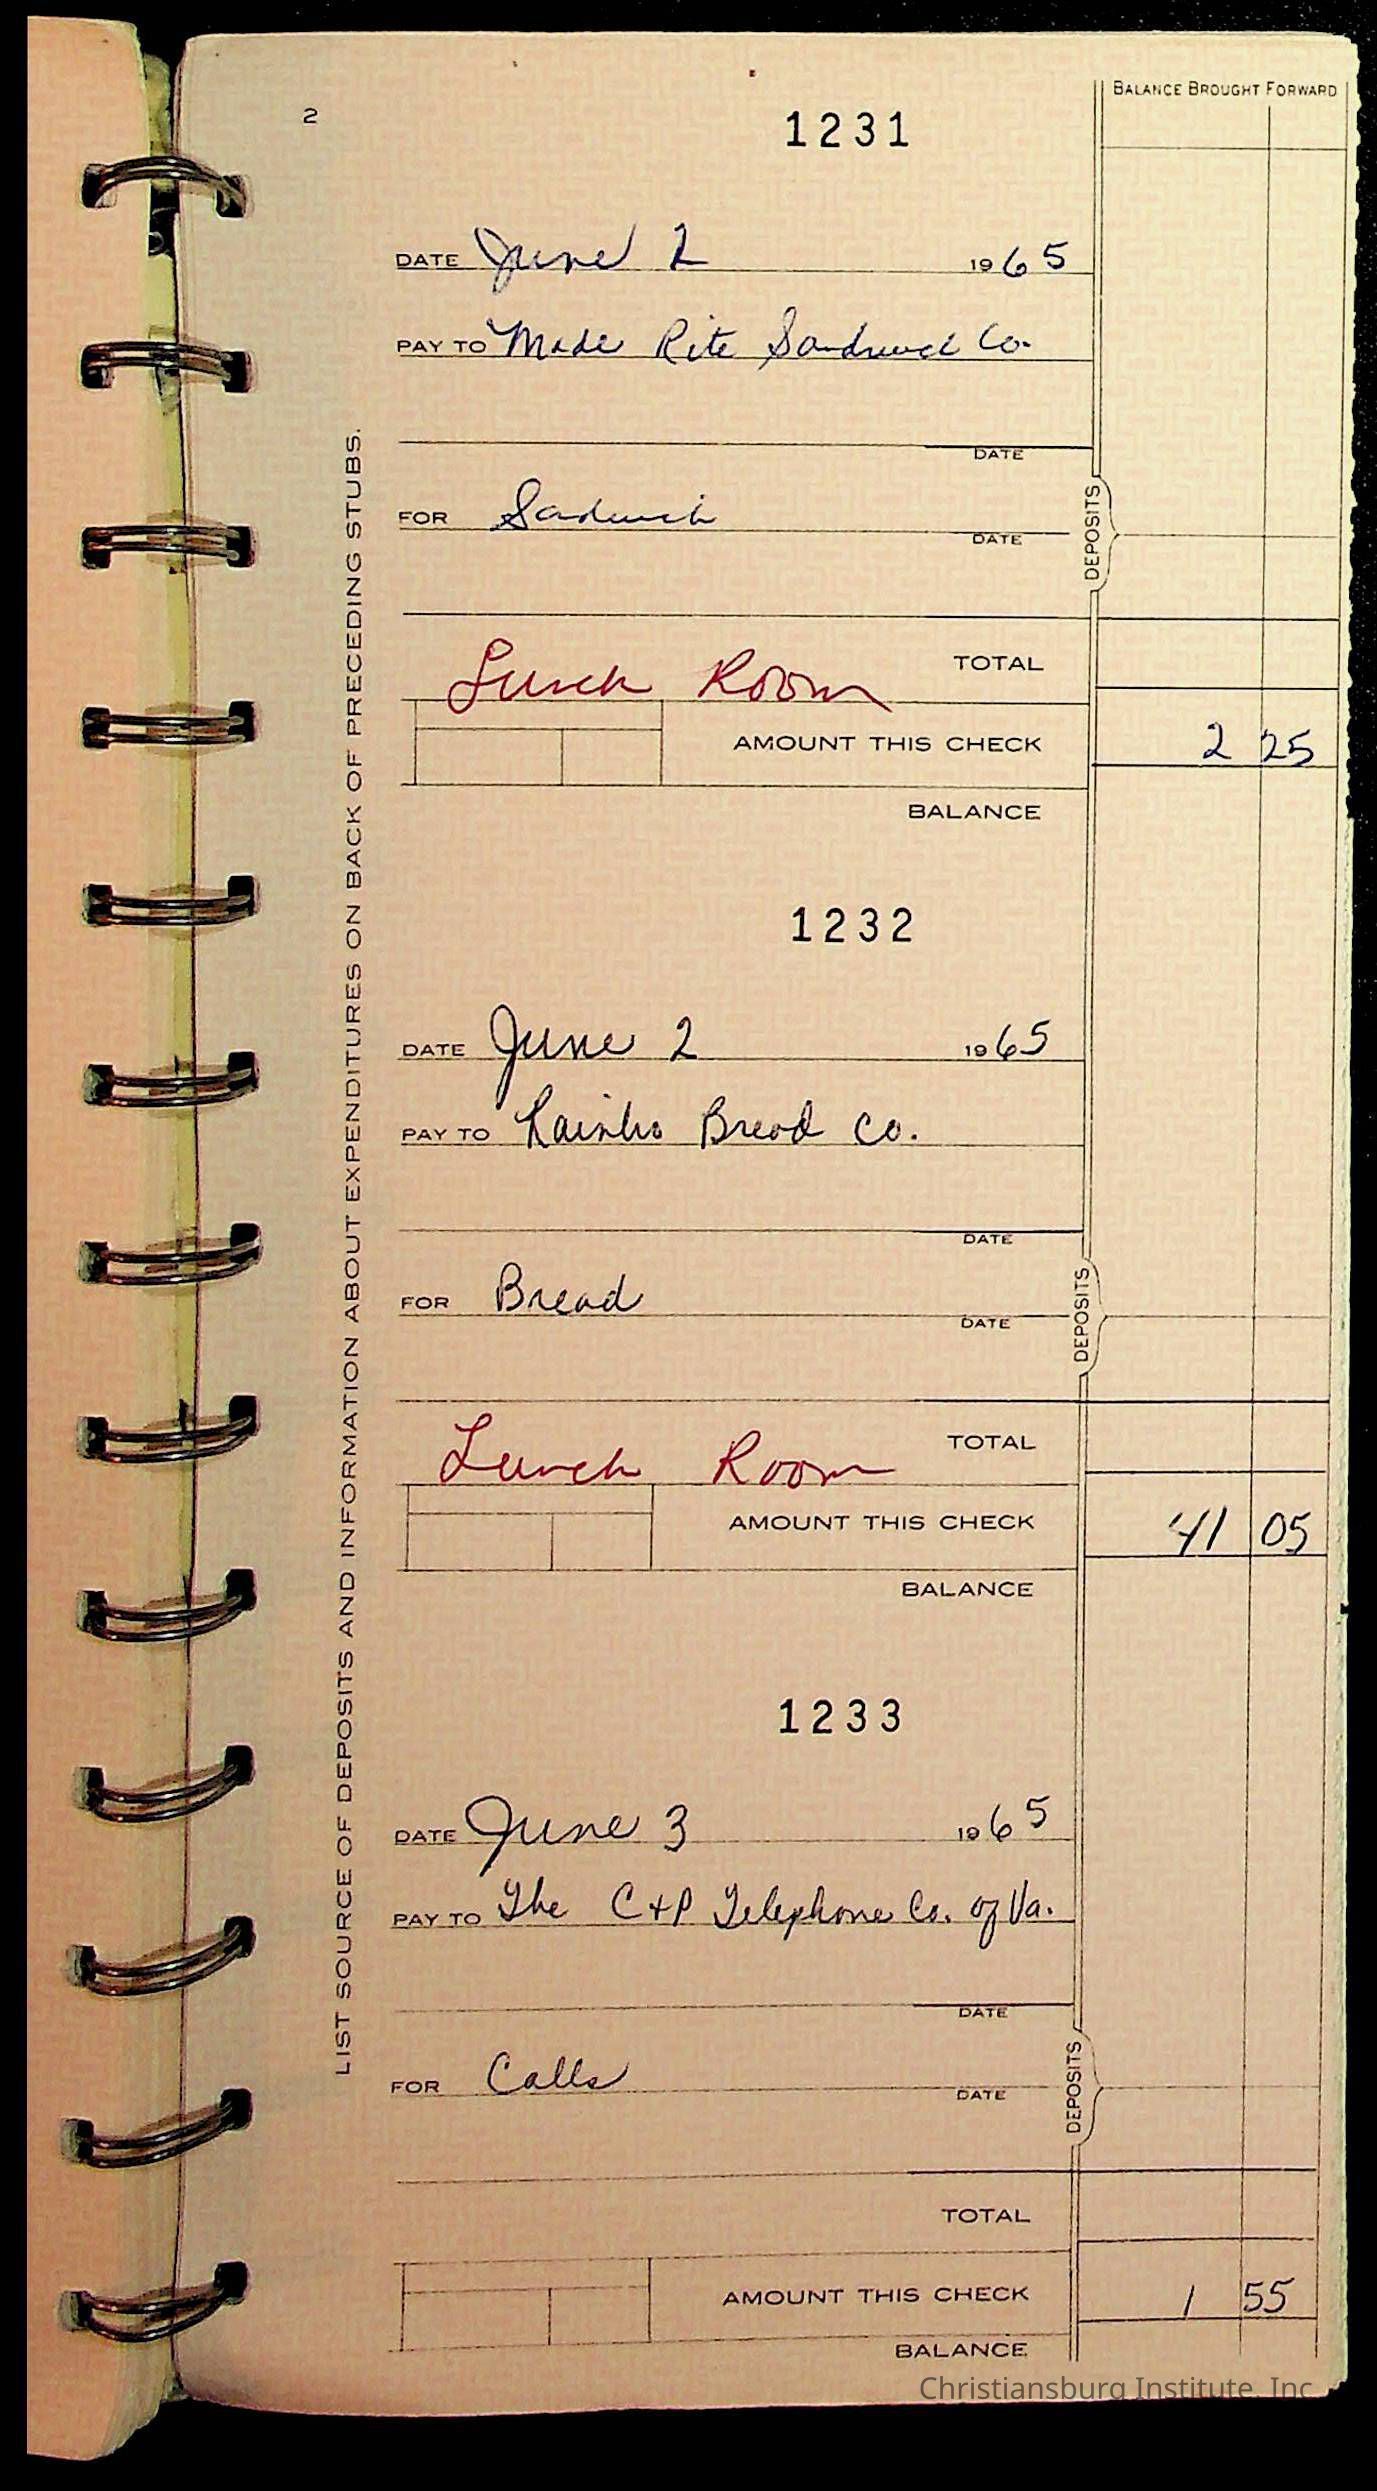 2
1231
BALANCE BROUGHT FORWARD
DATE June 2 1965
PAY TO Made Rite Sandwich Co.
DATE
FOR Sandwich
DATE
DEPOSITS
Lunch Room TOTAL
AMOUNT THIS CHECK 2 25
BALANCE
1232
DATE June 2 1965
PAY TO Rainbo Bread Co.
DATE
FOR Bread
DATE
DEPOSITS
Lunch Room TOTAL
AMOUNT THIS CHECK 41 05
BALANCE
1233
DATE June 3 1965
PAY TO The C+P Telephone Co. of Va.
DATE
FOR Calls
DATE
DEPOSITS
TOTAL
AMOUNT THIS CHECK 1 55
BALANCE
LIST SOURCE OF DEPOSITS AND INFORMATION ABOUT EXPENDITURES ON BACK OF PRECEDING STUBS.
Christiansburg Institute, Inc